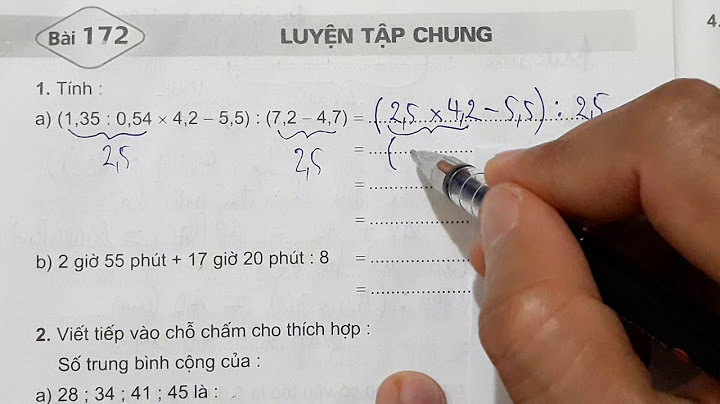 Bài 172 LUYỆN TẬP CHUNG 4.
1. Tính :
a) (1,35 : 0,54 × 4,2 – 5,5) : (7,2 – 4,7) = (2,5 × 4,2 – 5,5) : 2,5
2,5 2,5 = (
=
=
b) 2 giờ 55 phút + 17 giờ 20 phút : 8 =
=
2. Viết tiếp vào chỗ chấm cho thích hợp :
Số trung bình cộng của :
a) 28 ; 34 ; 41 ; 45 là :